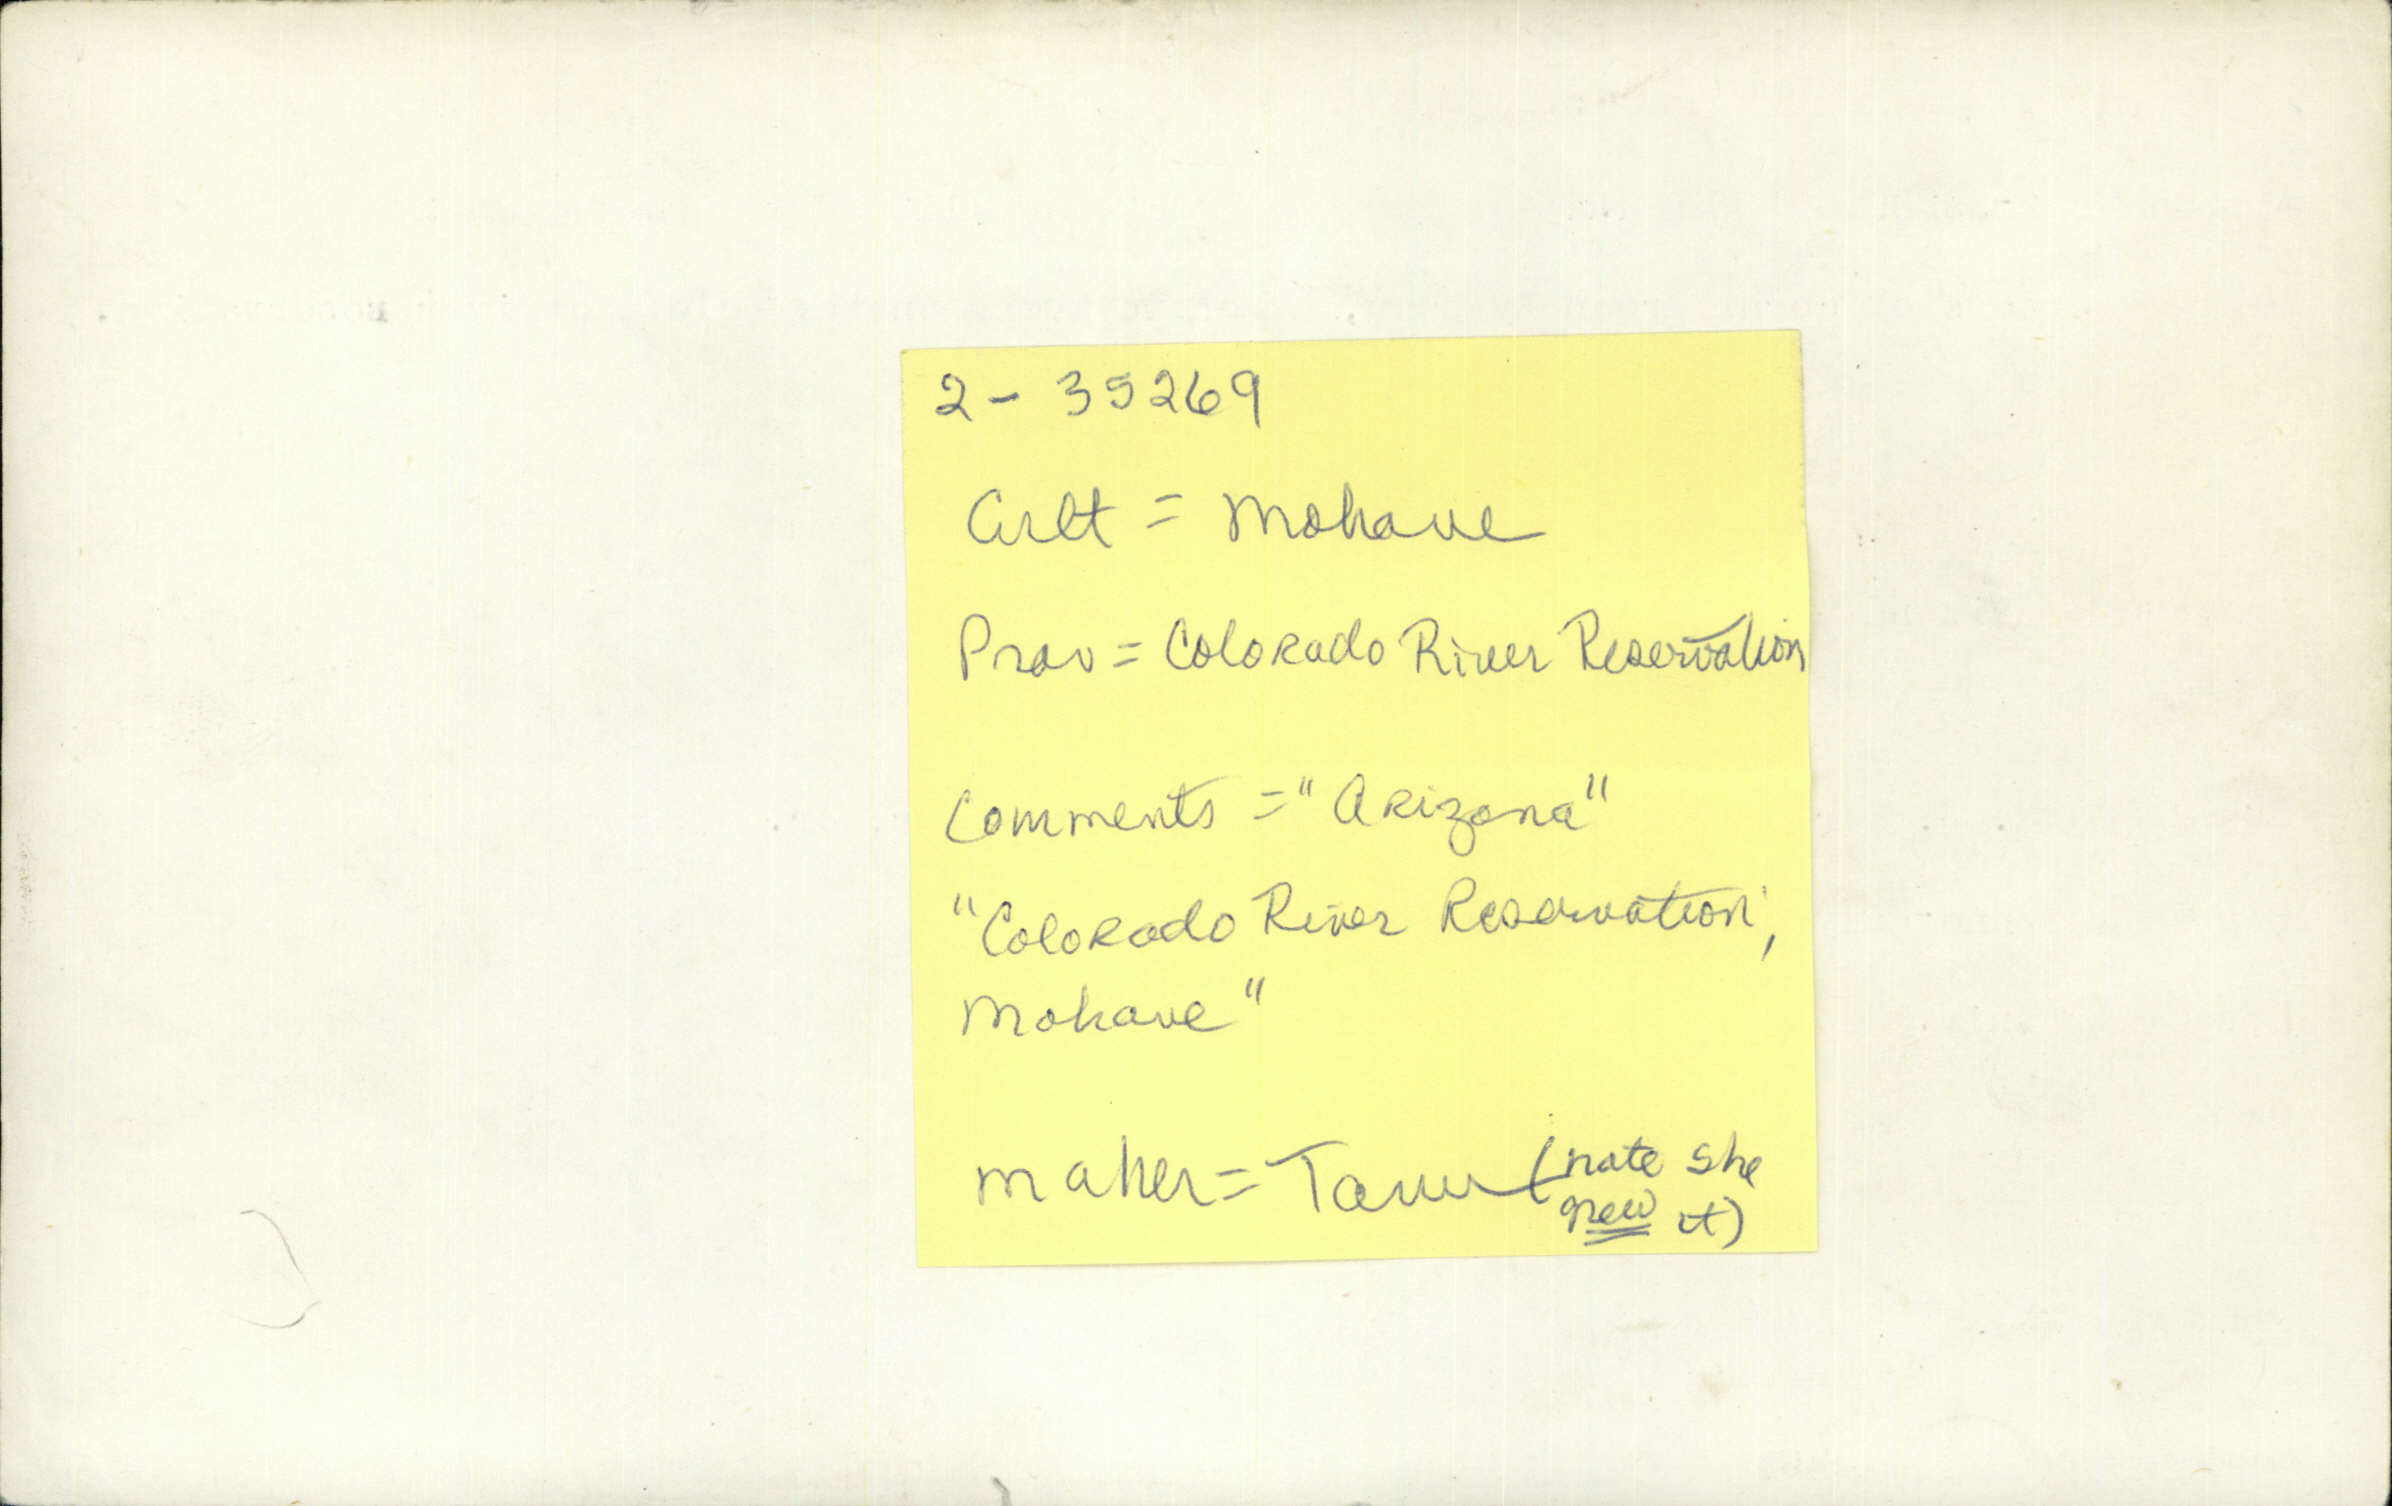 2-35269
Cult = Mohave
Prov = Colorado River Reservation
Comments = "Arizona"
"Colorado River Reservation,
Mohave"
maker = (note she
new it)